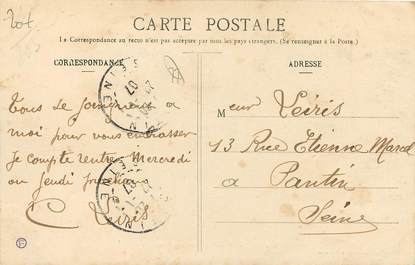 20f
CARTE POSTALE
La Correspondance au recto n'est pas acceptée par tous les pays étrangers. (Se renseigner à la Poste.)
CORRESPONDANCE
Tous se joignent a
moi pour vous embrasser
Je compte rentrer Mercredi
ou Jeudi prochain
C Leiris
ADRESSE
Meur Leiris
13 Rue Etienne Marcel
a Pantin
Seine